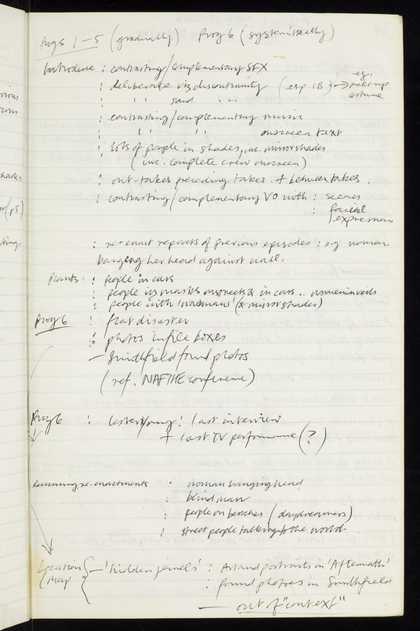 Progs 1-5 (gradually) Prog 6 (systematically)
Introduce : contrasting/complementary SFX
: deliberate vis discontinuity (esp 1B) → eg. makeup
" " sound " " costume
: contrasting/complementing music
: " " " onscreen text
: lots of people in shades, inc. mirrorshades
(inc. complete crew onscreen)
: out-takes preceding takes & between takes.
: contrasting/complementary VO with : scenes
: facial expression
: re-enact repeats of previous episodes : eg woman
banging her head against wall.
: people in cars
: people w masks on streets & in cars ..
: people with 'walkmans' (& mirrorshades)
Prog 6 : flat disaster
: photos in file boxes
— Smithfield found photos
(ref. NATFHE conference)
Prog 6 : Lester Young : last interview
+ last TV performance (?)
Running re-enactments : woman banging head
: blind man
: people on benches (daydreamers)
: street people talking to the world
Location Map — 'hidden jewels' : Arland portraits in 'Aftermath'
: found photos in Smithfield
— out of "context"